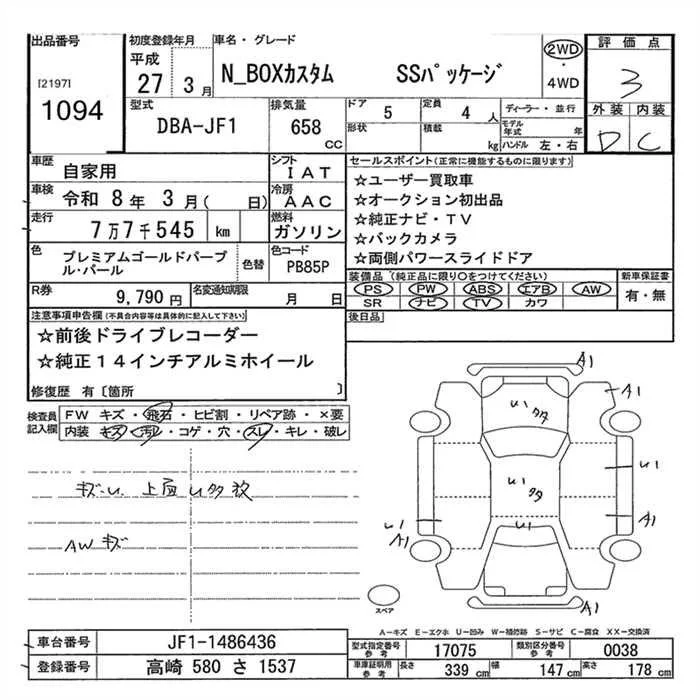 出品番号
[2197]
1094
初度登録年月
平成
27 3月
車名・グレード
N_BOXカスタム SSパッケージ
2WD
・
4WD
評価点
3
外装 内装
D C
型式
DBA-JF1
排気量
658
CC
ドア 5
定員 4 人
ディーラー・並行
形状
積載 kg
モデル年式 年
ハンドル 左・右
車歴
自家用
シフト
IAT
車検 令和 8年 3月( 日)
冷房
AAC
走行 7万7千545 km
燃料
ガソリン
色
プレミアムゴールドパープル・パール
色替
色コード
PB85P
R券 9,790 円
名変通知期限
月 日
セールスポイント(正常に機能するものに限ります)
☆ユーザー買取車
☆オークション初出品
☆純正ナビ・TV
☆バックカメラ
☆両側パワースライドドア
装備品 (純正品に限り○をつけてください)
PS PW ABS エアB AW
SR ナビ TV カワ
新車保証書
有・無
後日品
注意事項申告欄(不具合内容等は具体的に記入して下さい)
☆前後ドライブレコーダー
☆純正14インチアルミホイール
修復歴 有〔箇所 〕
検査員記入欄
FW キズ・飛石・ヒビ割・リペア跡・×要
内装 キズ・汚レ・コゲ・穴・スレ・キレ・破レ
キズ・U. 上面 U多数
AW キズ
A1
A1
U1
多タ
U1
多タ
U1
U1
U1
A1
A1
A1
スペア
A-キズ E-エクボ U-凹み W-補修跡 S-サビ C-腐食 XX-交換済
車台番号 JF1-1486436
登録番号 高崎 580 さ 1537
型式指定番号 参考 17075
類別区分番号 参考 0038
車庫証明用 参考 長さ 339 cm 幅 147 cm 高さ 178 cm